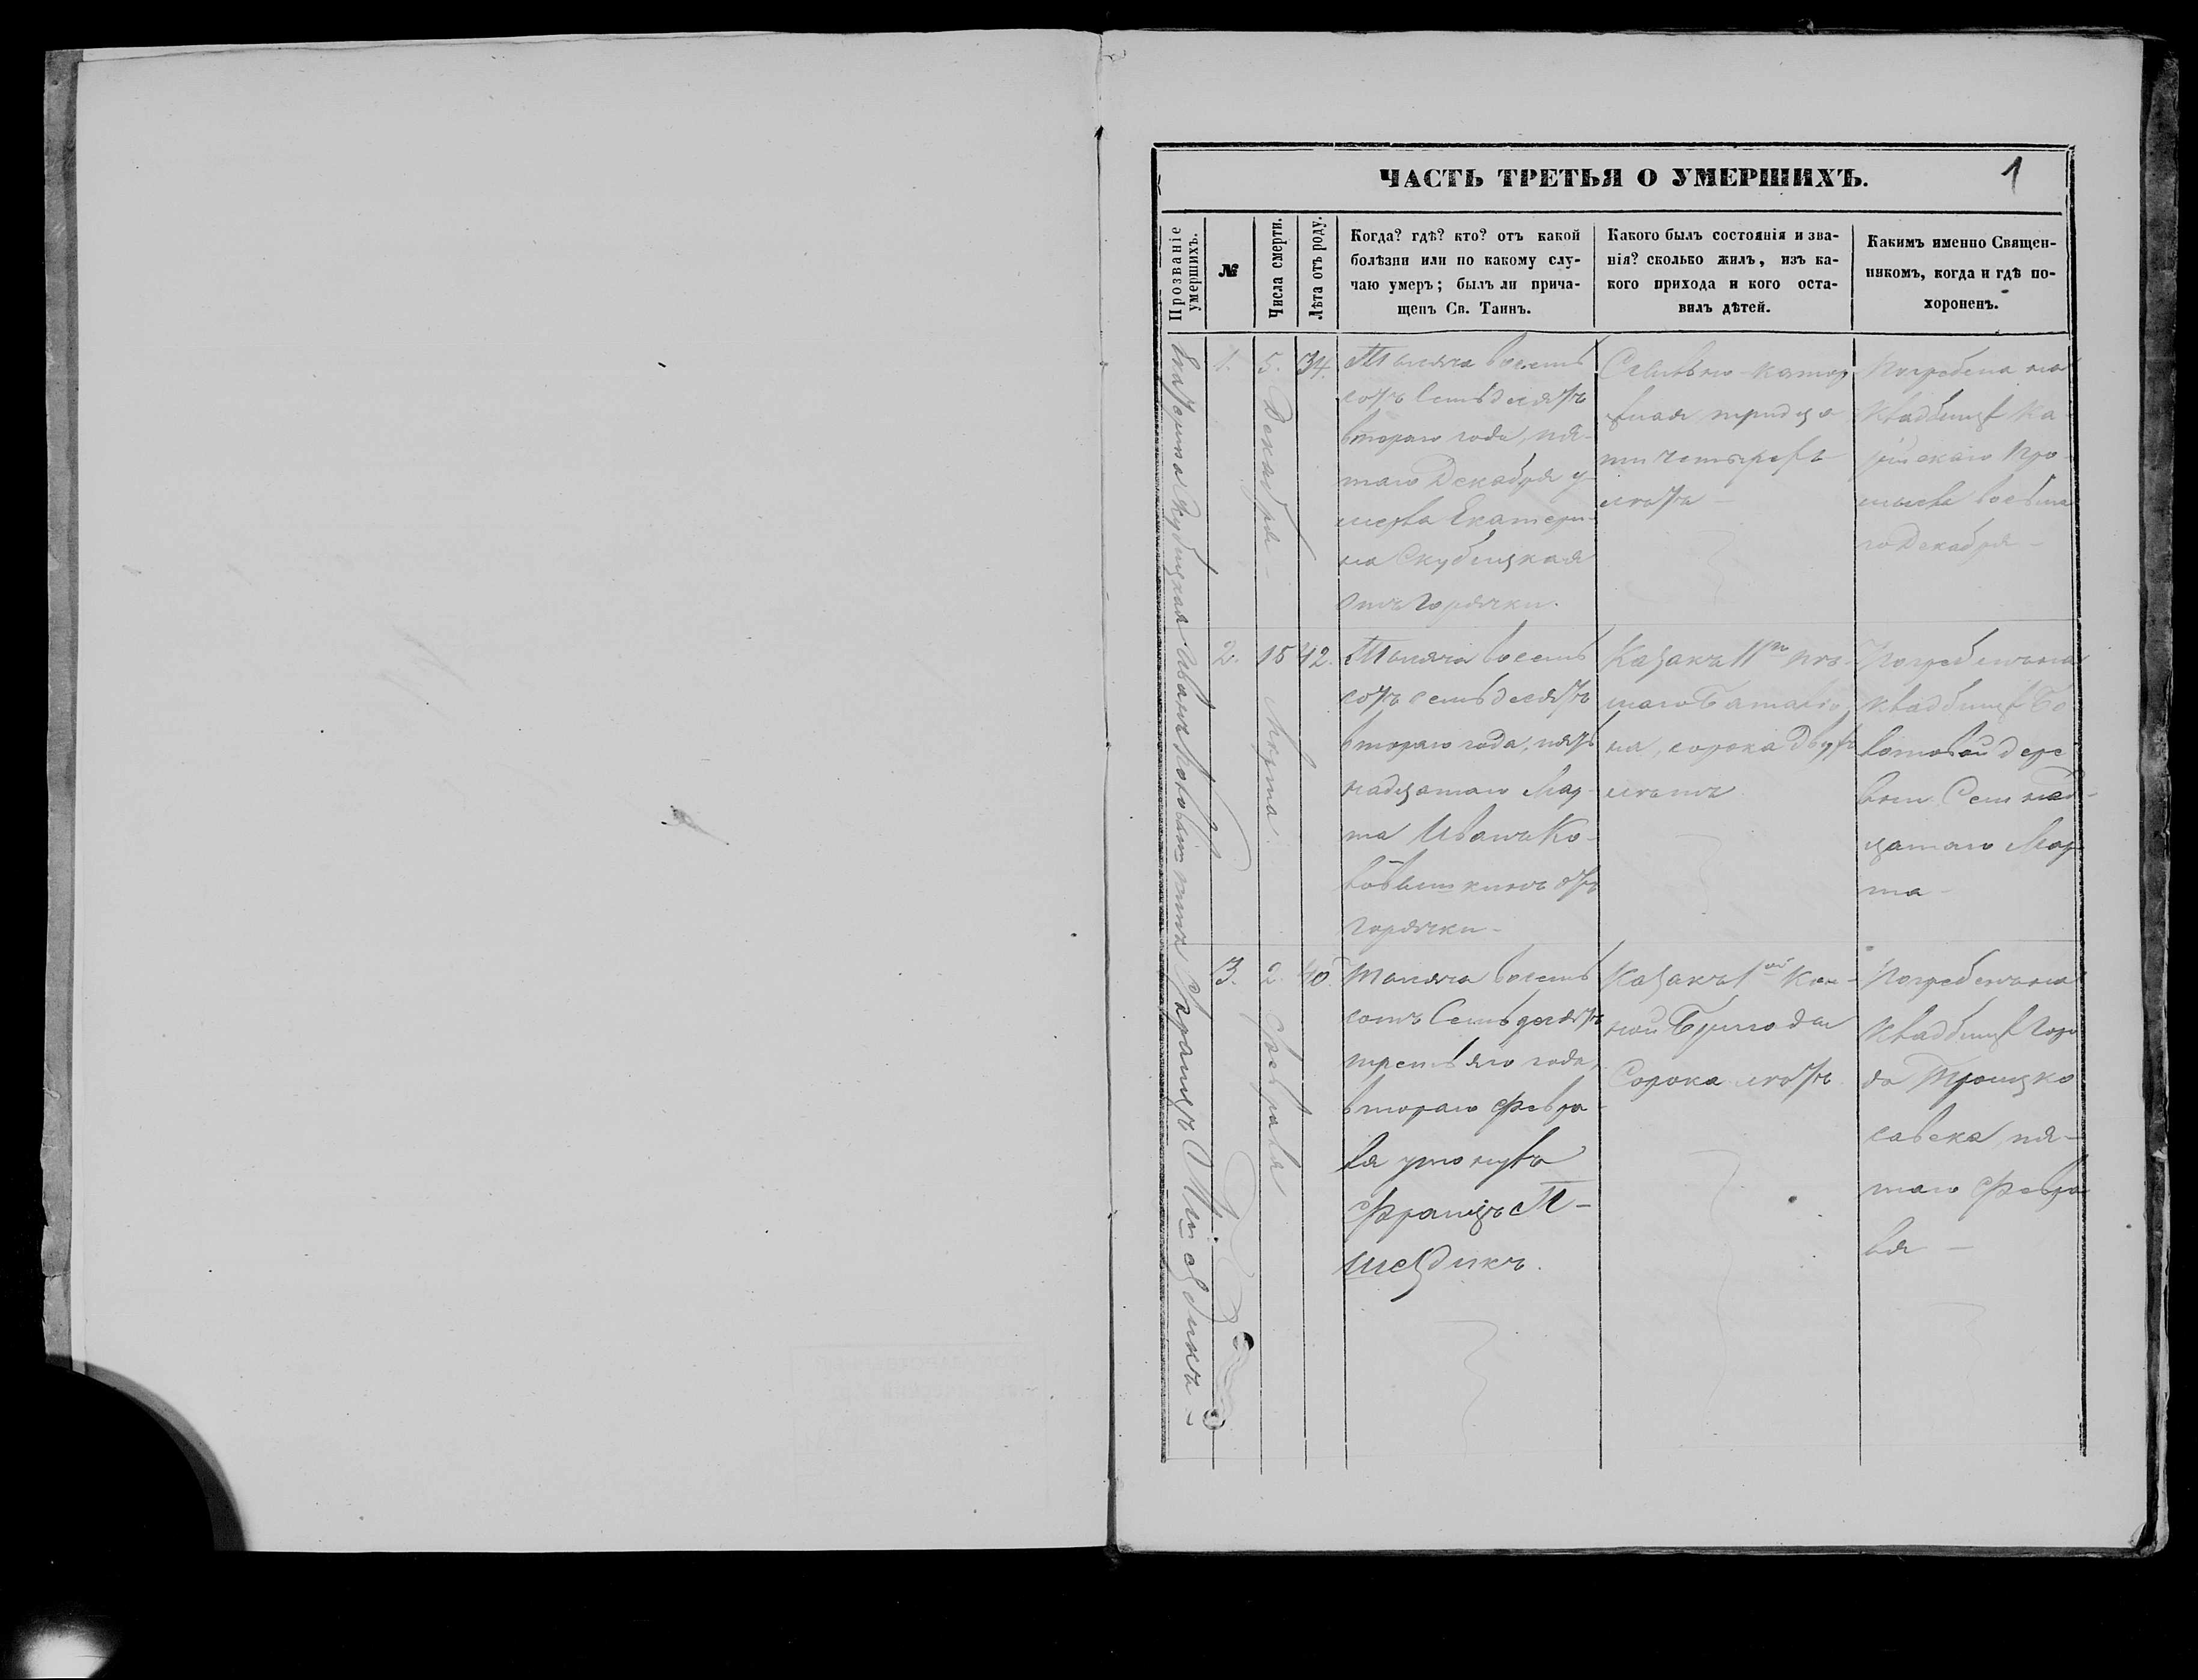 ЧАСТЬ ТРЕТЬЯ О УМЕРШИХЪ.
1
Прозваніе умершихъ.
№
Числа смерти.
Лѣта отъ роду.
Когда? гдѣ? кто? отъ какой
болѣзни или по какому слу-
чаю умеръ; былъ ли прича-
щенъ Св. Таинъ.
Какого былъ состоянія и зва-
нія? сколько жилъ, изъ ка-
кого прихода и кого оста-
вилъ дѣтей.
Какимъ именно Священ-
никомъ, когда и гдѣ по-
хороненъ.
Екатерина Скубицкая
1.
5. Декабря
34.
Тысяча восемь
сотъ семьдесятъ
втораго года, пя-
таго Декабря у-
мерла Екатери-
на Скубицкая
отъ горячки.
Ссыльно-катор
жная тридца
ти четырехъ
лѣтъ
Погребена на
кладбищѣ Ка
рійскаго Про-
мысла восьма
го Декабря
Иванъ
2.
15 Марта
42.
Тысяча восемь
сотъ семьдесятъ
втораго года, пят
надцатаго Мар-
та Иванъ Ко-
отъ
горячки
Казакъ 11го пѣ-
шаго Баталіо-
на, сорока двухъ
лѣтъ
Погребенъ на
кладбищѣ Бо
товой дере
вни Семнад-
цатаго Мар-
та
Францъ Мшездикъ
3.
2. Февраля
40.
Тысяча восемь
сотъ Семьдесятъ
третьяго года,
втораго Февра-
ля утонулъ
Францъ М-
шездикъ.
Казакъ 1ой Кон-
ной Бригады
Сорока лѣтъ
Погребенъ на
кладбищѣ горо
да Троицко
савска, пя-
таго Февра
ля